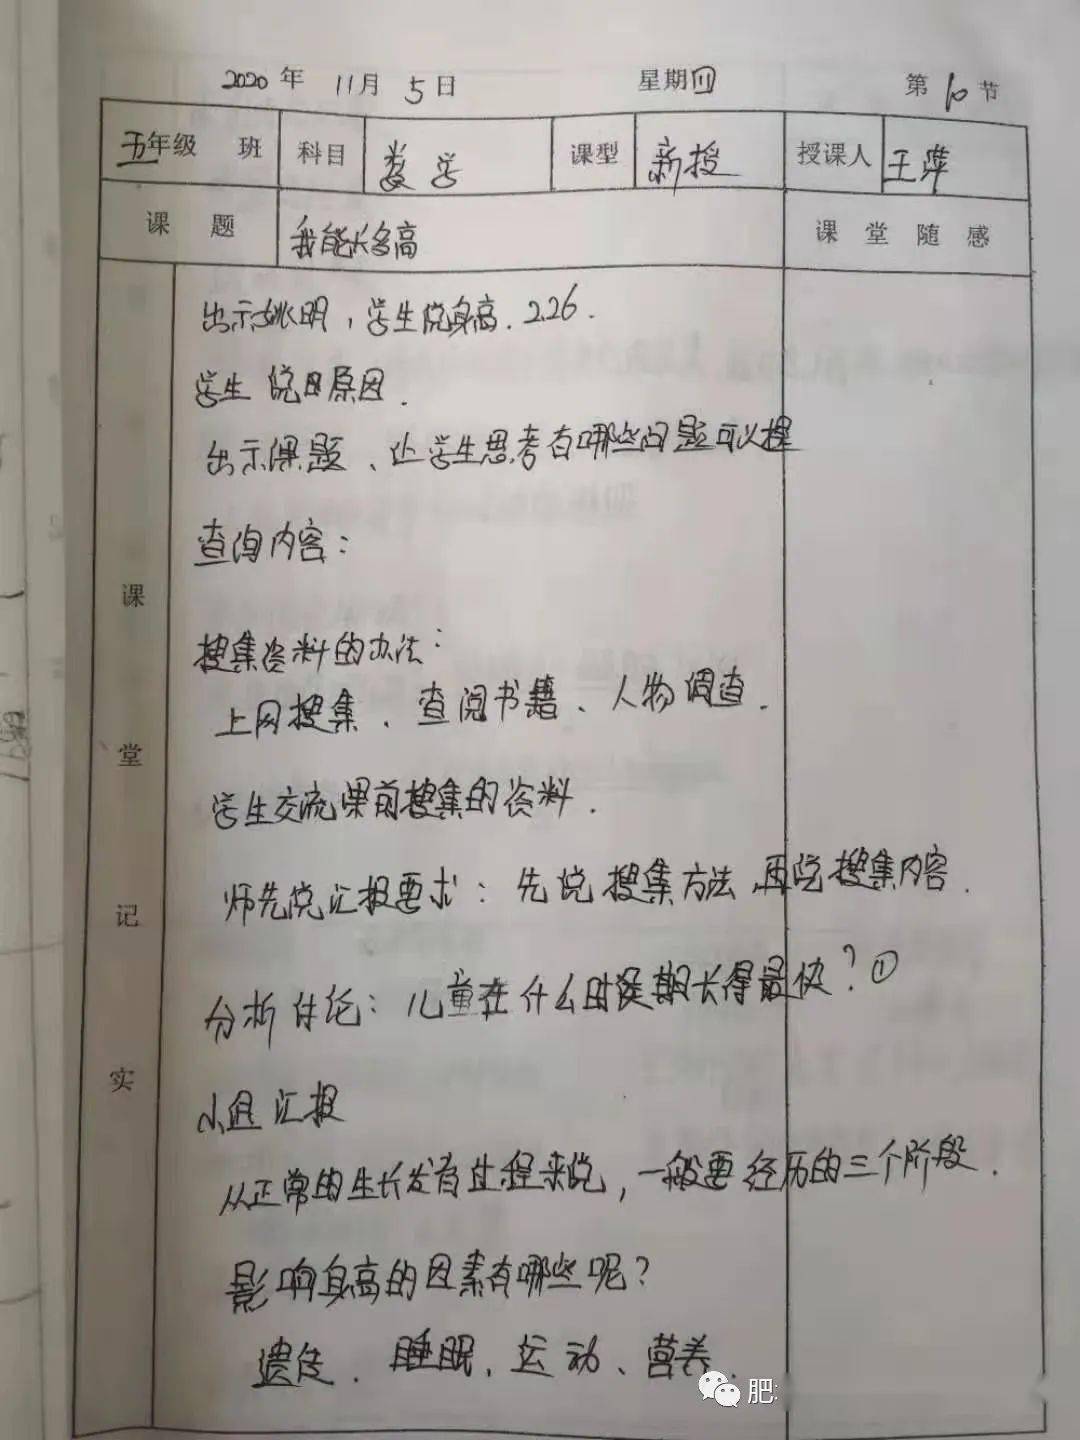 2020年 11月 5日 星期四 第10节
五年级 班 科目 数学 课型 新授 授课人 王萍
课题 我能长多高 课堂随感
课堂记实
出示姚明，学生说身高. 2.26.
学生说日原因.
出示课题、让学生思考有哪些问题可以提
查询内容：
搜集资料的办法：
上网搜集、查阅书籍、人物调查.
学生交流课前搜集的资料.
师先说汇报要求：先说搜集方法，再说搜集内容.
分析讨论：儿童在什么时候期长得最快？①
小组汇报
从正常的生长发育过程来说，一般要经历的三个阶段.
影响身高的因素有哪些呢？
遗传、睡眠、运动、营养.
肥